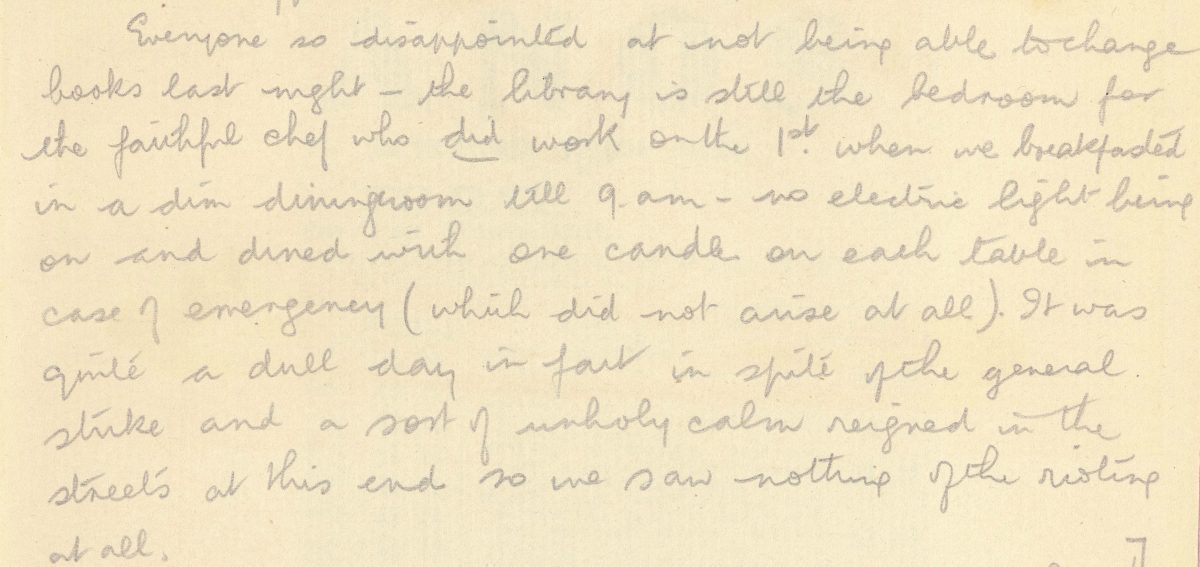 Everyone so disappointed at not being able to change
books last night – the library is still the bedroom for
the faithful chef who did work on the 1st. when we breakfasted
in a dim diningroom till 9 am – no electric light being
on and dined with one candle on each table in
case of emergency (which did not arise at all). It was
quite a dull day in fact in spite of the general
strike and a sort of unholy calm reigned in the
streets at this end so we saw nothing of the rioting
at all.